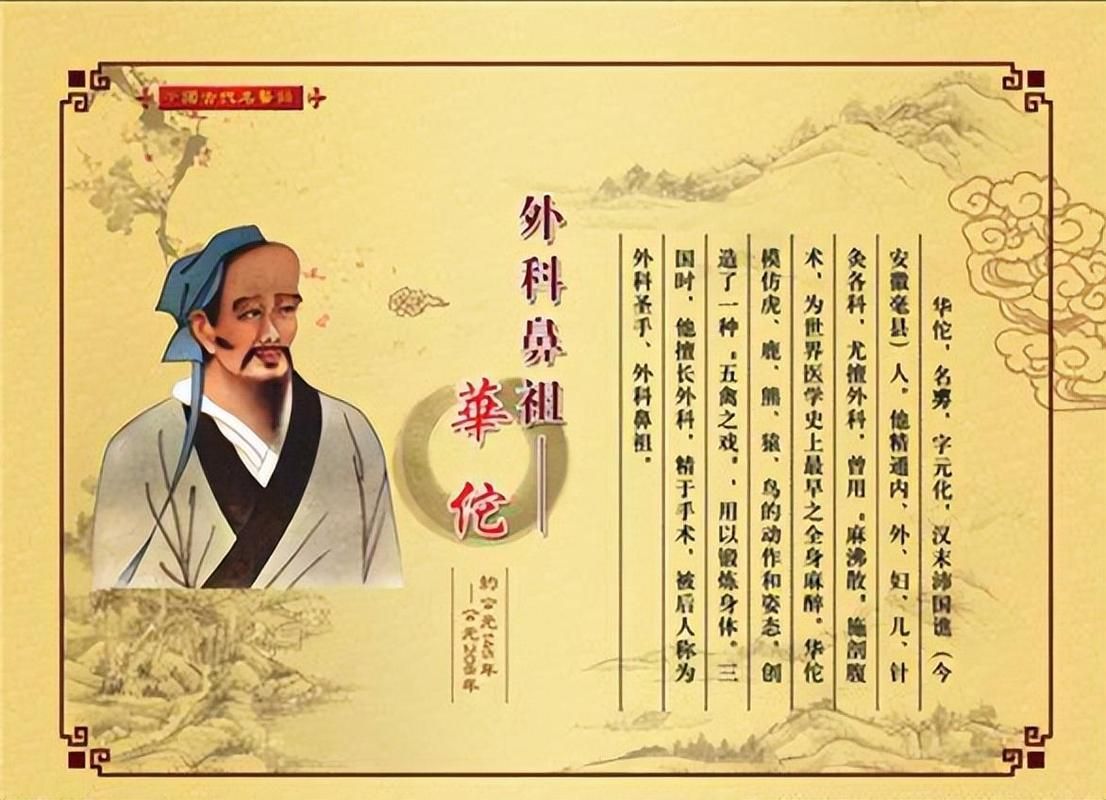 中國古代名醫
外科鼻祖——
華佗
約公元
——公元
华佗，名旉，字元化，汉末沛国谯（今
安徽亳县）人。他精通内、外、妇、儿、针
灸各科，尤擅外科，曾用“麻沸散”施剖腹
术，为世界医学史上最早之全身麻醉。华佗
模仿虎、鹿、熊、猿、鸟的动作和姿态，创
造了一种“五禽之戏”，用以锻炼身体。三
国时，他擅长外科，精于手术，被后人称为
外科圣手、外科鼻祖。